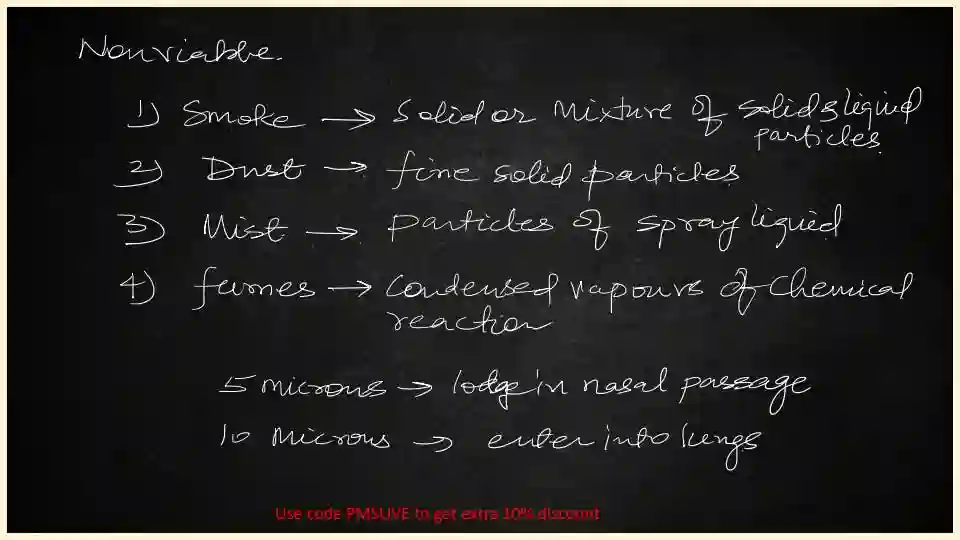 Nonviable.
1) Smoke → Solid or Mixture of solid & liquid
particles
2) Dust → fine solid particles
3) Mist → particles of spray liquid
4) fumes → Condensed vapours of Chemical
reaction
5 microns → lodge in nasal passage
10 Microns → enter into lungs
Use code PMSUVE to get extra 10% discount